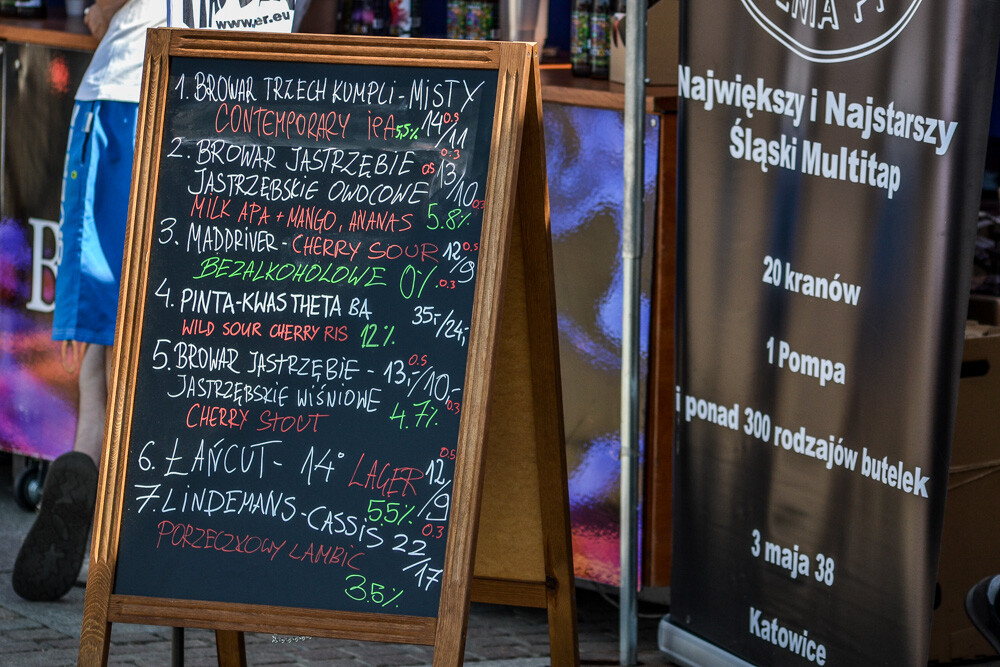 www.er.eu
1. BROWAR TRZECH KUMPLI - MISTY
CONTEMPORARY IPA 5,5% 14/11 0.5
2. BROWAR JASTRZĘBIE 0.5 13/10 0.3
JASTRZĘBSKIE OWOCOWE 0.3
MILK APA + MANGO, ANANAS 5.8%
3. MADDRIVER - CHERRY SOUR 12/9 0.5
BEZALKOHOLOWE 0% 0.3
4. PINTA - KWAS THETA BA 35,-/24,-
WILD SOUR CHERRY RIS 12%
5. BROWAR JASTRZĘBIE - 13,-/10,- 0.5
JASTRZĘBSKIE WIŚNIOWE 0.3
CHERRY STOUT 4.7%
6. ŁAŃCUT - 14° LAGER 12/9 0.5
5.5% 0.3
7. LINDEMANS - CASSIS 22/17
PORZECZKOWY LAMBIC
3.5%
Największy i Najstarszy
Śląski Multitap
20 kranów
1 Pompa
i ponad 300 rodzajów butelek
3 maja 38
Katowice